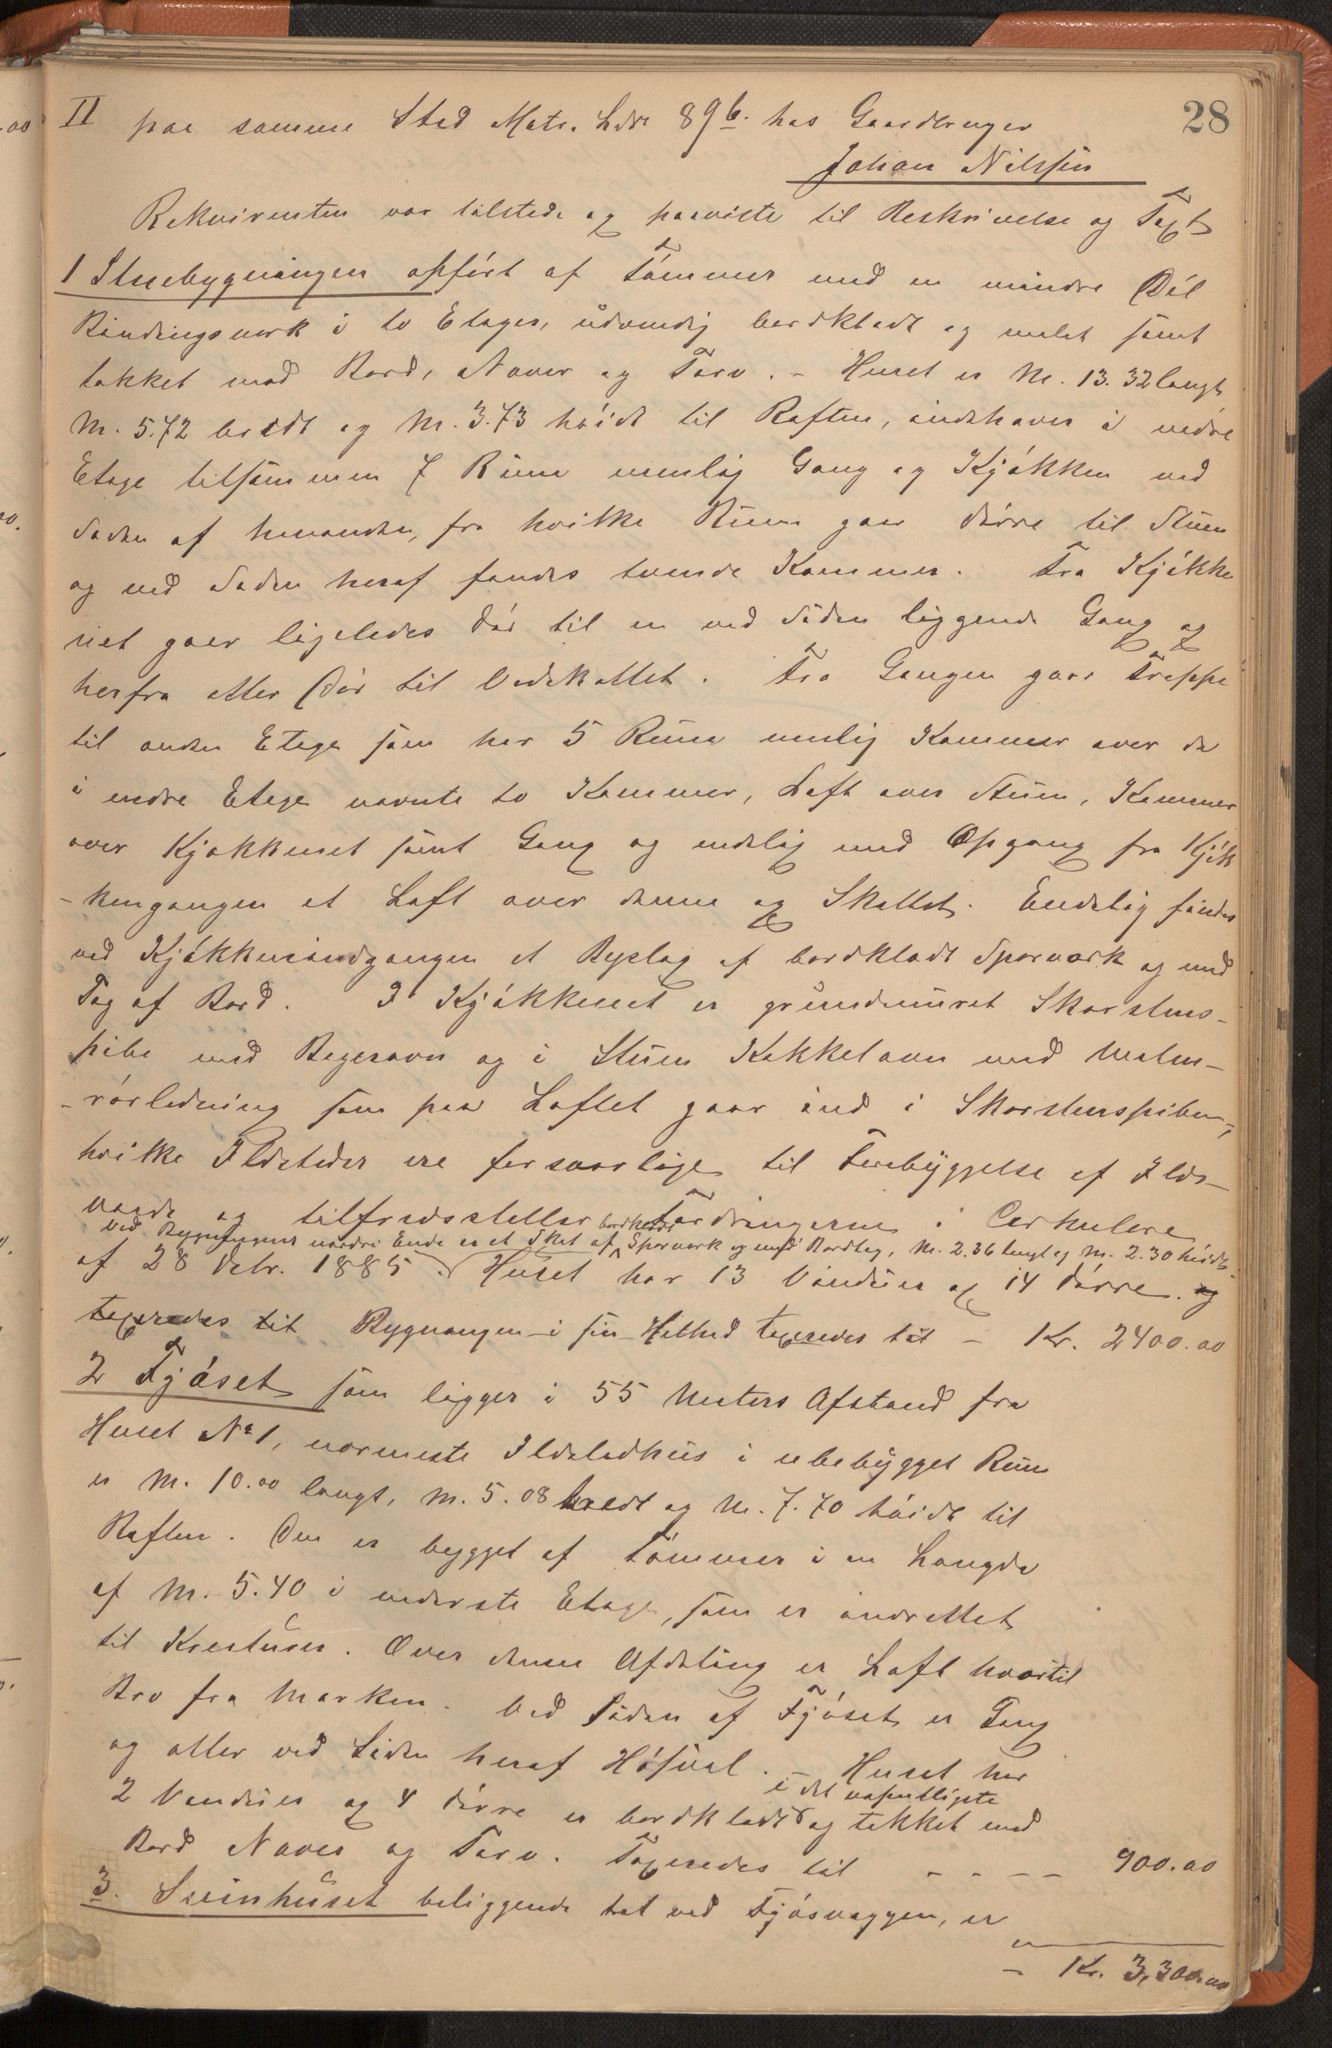 28
II paa samme Sted Matr. Lbr. 89b. hos Gaardbruger
Johan Nilssen
Rekvirenten var tilstede og paaviste til Beskrivelse og Taxt
1 Stuebygningen opfört af Tömmer med en mindre Del
Bindingsverk i to Etager, udvendig bordklædt og malet samt
tækket med Bord, Næver og Torv. - Huset er M. 13.32 langt
M. 5.72 bredt og M. 3.73 höidt til Raften, indehaver i nedre
Etage tilsammen 7 Rum nemlig Gang og Kjökken ved
Siden af hinanden, fra hvilke Rum gaar Dörre til Stuen
og ved Siden heraf fandes tvende Kammer. Fra Kjökke
net gaar ligeledes Dör til en ved Siden liggende Gang og
herfra atter Dör til Vedskottet. Fra Gangen gaar Trappe
til anden Etage som har 5 Rum nemlig Kammer over de
i nedre Etage nævnte to Kammer, Loft over Stuen, Kammer
over Kjøkkenet samt Gang og endelig med Opgang fra Kjök
-kengangen et Loft over denne og Skottet. Endelig fandes
ved Kjökkenindgangen et Byslag af bordklædt Sporværk og med
Tag af Bord. I Kjökkenet er grundmuret Skorstens-
pibe med Bagerovn og i Stuen Kakkelovn med Malm-
-rörledning som paa Loftet gaar ind i Skorstenspiben,
hvilke Ildsteder ere forsvarlige til Forebyggelse af Ilds-
vaade og tilfredsstiller Fordringerne i Cirkulære
ved Bygningens nordre Ende er et Skot af bordklædt Sporværk og med Bordtag, M. 2.36 langt og M. 2.30 höidt
af 28 Debr. 1885. Huset har 13 Vinduer og 14 Dörre. og
taxeredes til Bygningen i sin Helhed taxeredes til - Kr. 2400.00
2 Fjöset som ligger i 55 Meters Afstand fra
Huset No 1, nærmeste Ildstedhus i ubebygget Rum
er M. 10.00 langt, M. 5.08 bredt og M. 7.70 höidt til
Raften. Den er bygget af Tömmer i en Længde
af M. 5.40 i nederste Etage, som er indrettet
til Kreaturer. Over denne Afdeling er Loft hvortil
Bro fra Marken. Ved Siden af Fjöset er Gang
og atter ved Siden heraf Höskul. - Huset har
2 Vinduer og 4 Dörre er bordklædt i det væsentligste og tækket med
Bord Næver og Torv. Taxeredes til - - - - 900.00
3. Svinhuset beliggende tæt ved Fjösvæggen, er
- Kr. 3,300.00